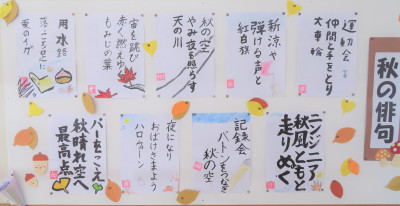 秋の俳句
運動会
仲間と手をとり
大車輪
新涼や
弾ける声と
紅白旗
秋の空
やみ夜を照らす
天の川
宙を跳び
赤く燃えゆ
もみじの葉
用水路
ニンジニア
秋風とともに
走りぬく
記録会
バトンをつなぎ
秋の空
夜になり
おばけさまよう
ハロウィーン
バーをこえ
秋晴れ空へ
最高点